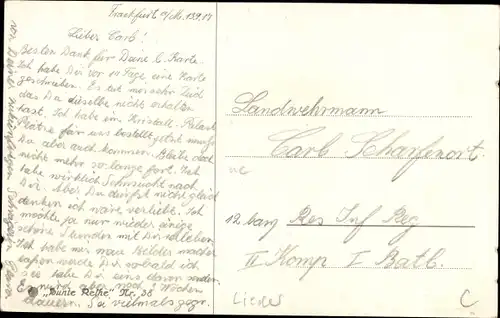 Frankfurt a/M. 13.9.17
Lieber Carl!
Besten Dank für Deine l. Karte.
Ich habe Dir vor 10 Tage, eine Karte
geschrieben. Es tut mir sehr Leid
das Du dieselbe nicht erhalten
hast. Ich habe im Kristall-Palast
Plätze für uns bestellt jetzt musst
Du aber auch kommen. Bleibe doch
nicht mehr so lange fort. Ich
habe wirklich Sehnsucht nach
Dir. Aber Du darfst nicht gleich
denken ich wäre verliebt. Ich
möchte ja nur wieder einige
schöne Stunden mit Dir verleben.
Ich habe mir neue Bilder machen
lassen werde Dir sobald ich
sie habe Dir eins davon senden.
Es wird aber noch 3 Wochen
dauern. Sei vielmals gegr.
von Deiner
"Bunte Reihe" Nr. 38
Landwehrmann
Carl Scharfenort
12 bay Res Inf Reg
II Komp I Batl.
Lieder
C